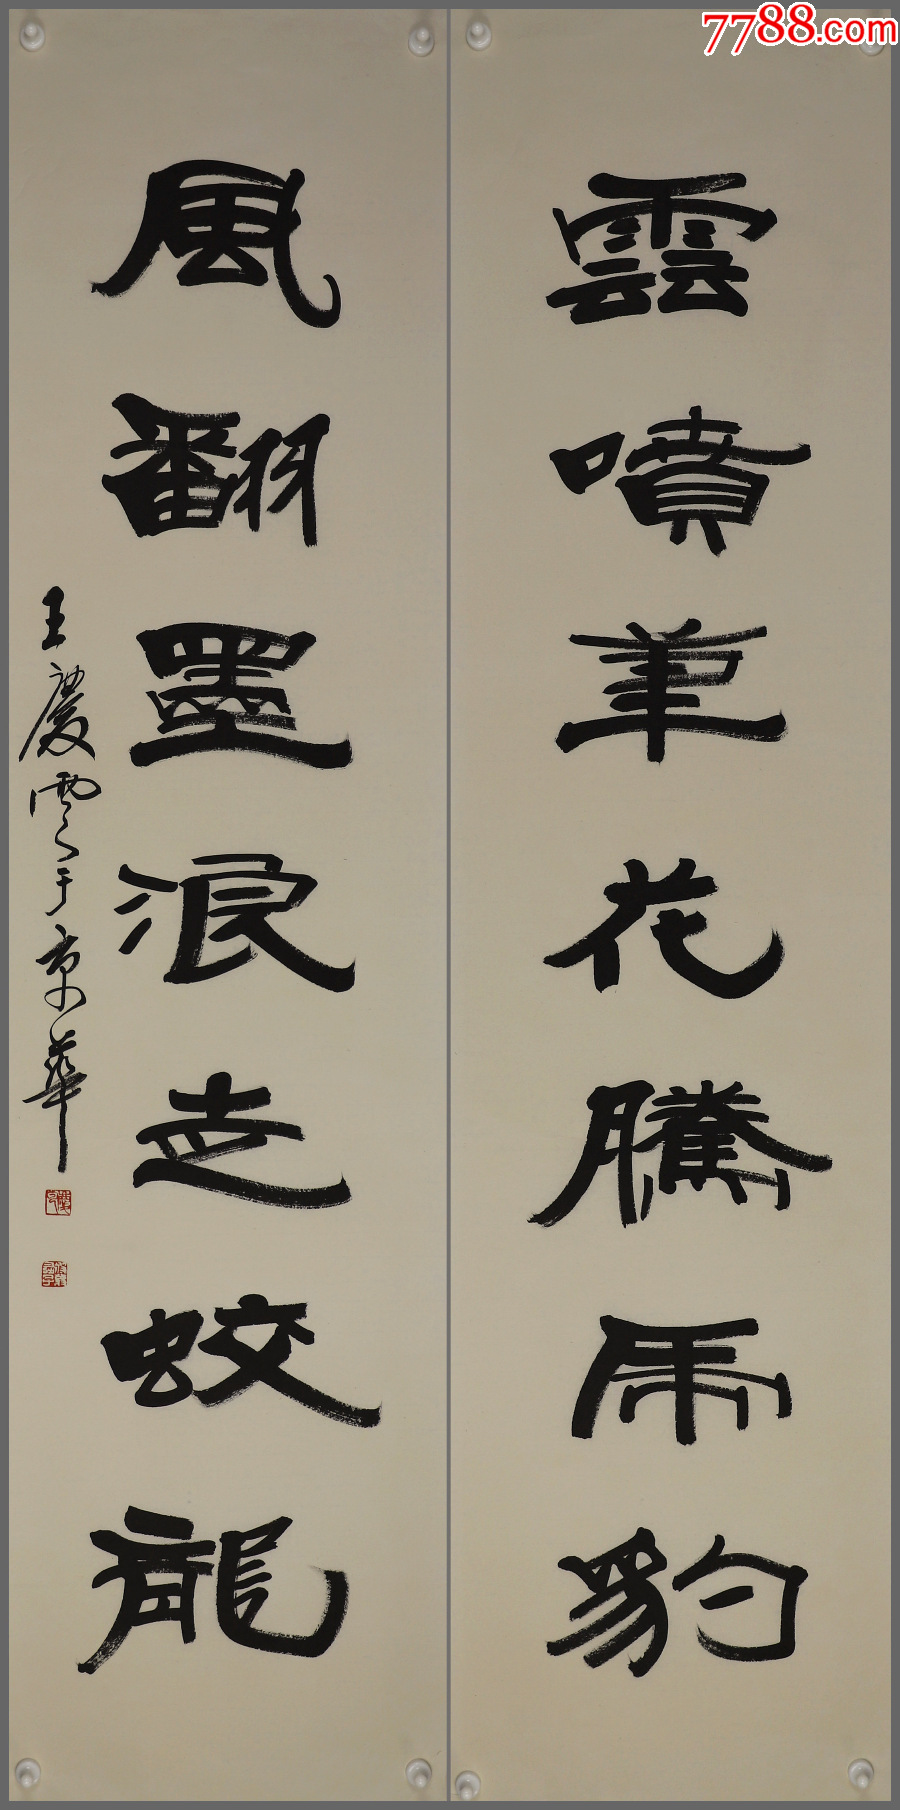 雲噴筆花騰虎豹
風翻墨浪走蛟龍
王慶雲于京華
7788.com